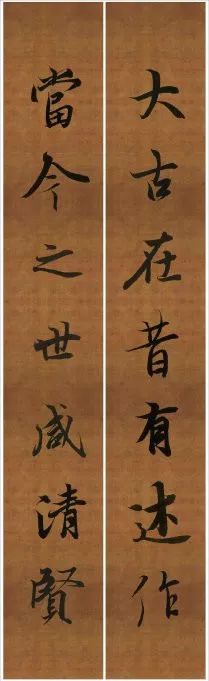 大古在昔有述作
當今之世咸清賢